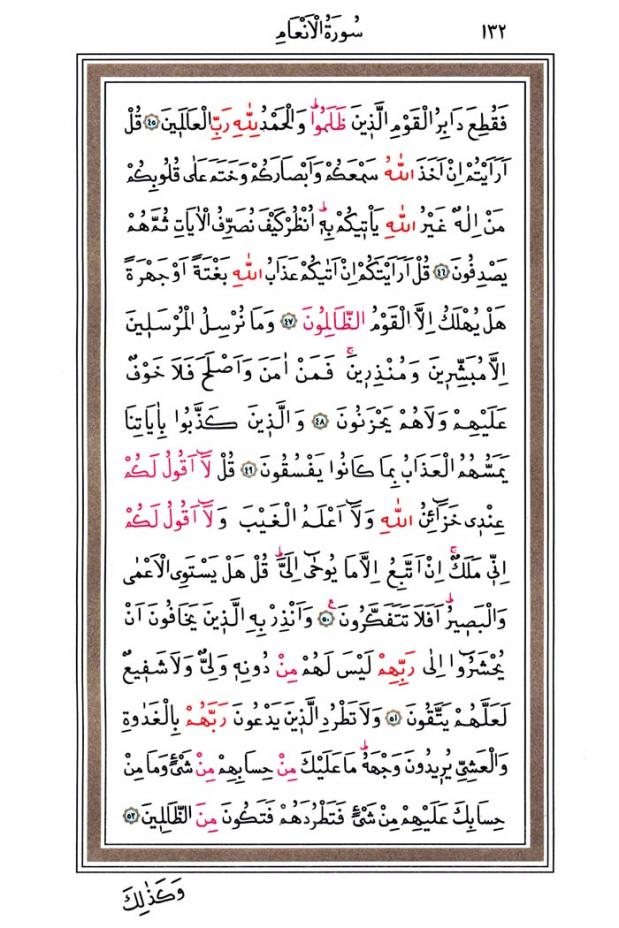 سُورَةُ الْاَنْعَامِ ١٣٢
فَقُطِعَ دَابِرُ الْقَوْمِ الَّذ۪ينَ ظَلَمُواۜ وَالْحَمْدُ لِلّٰهِ رَبِّ الْعَالَم۪ينَ ﴿٤٥﴾ قُلْ
اَرَاَيْتُمْ اِنْ اَخَذَ اللّٰهُ سَمْعَكُمْ وَاَبْصَارَكُمْ وَخَتَمَ عَلٰى قُلُوبِكُمْ
مَنْ اِلٰهٌ غَيْرُ اللّٰهِ يَأْت۪يكُمْ بِه۪ۜ اُنْظُرْ كَيْفَ نُصَرِّفُ الْاٰيَاتِ ثُمَّ هُمْ
يَصْدِفُونَ ﴿٤٦﴾ قُلْ اَرَاَيْتَكُمْ اِنْ اَتٰيكُمْ عَذَابُ اللّٰهِ بَغْتَةً اَوْ جَهْرَةً
هَلْ يُهْلَكُ اِلَّا الْقَوْمُ الظَّالِمُونَ ﴿٤٧﴾ وَمَا نُرْسِلُ الْمُرْسَل۪ينَ
اِلَّا مُبَشِّر۪ينَ وَمُنْذِر۪ينَۚ فَمَنْ اٰمَنَ وَاَصْلَحَ فَلَا خَوْفٌ
عَلَيْهِمْ وَلَا هُمْ يَحْزَنُونَ ﴿٤٨﴾ وَالَّذ۪ينَ كَذَّبُوا بِاٰيَاتِنَا
يَمَسُّهُمُ الْعَذَابُ بِمَا كَانُوا يَفْسُقُونَ ﴿٤٩﴾ قُلْ لَٓا اَقُولُ لَكُمْ
عِنْد۪ي خَزَٓائِنُ اللّٰهِ وَلَٓا اَعْلَمُ الْغَيْبَ وَلَٓا اَقُولُ لَكُمْ
اِنّ۪ي مَلَكٌۚ اِنْ اَتَّبِعُ اِلَّا مَا يُوحٰٓى اِلَيَّۜ قُلْ هَلْ يَسْتَوِي الْاَعْمٰى
وَالْبَص۪يرُۜ اَفَلَا تَتَفَكَّرُونَ۟ ﴿٥٠﴾ وَاَنْذِرْ بِهِ الَّذ۪ينَ يَخَافُونَ اَنْ
يُحْشَرُٓوا اِلٰى رَبِّهِمْ لَيْسَ لَهُمْ مِنْ دُونِه۪ وَلِيٌّ وَلَا شَف۪يعٌ
لَعَلَّهُمْ يَتَّقُونَ ﴿٥١﴾ وَلَا تَطْرُدِ الَّذ۪ينَ يَدْعُونَ رَبَّهُمْ بِالْغَدٰوةِ
وَالْعَشِيِّ يُر۪يدُونَ وَجْهَهُۜ مَا عَلَيْكَ مِنْ حِسَابِهِمْ مِنْ شَيْءٍ وَمَا مِنْ
حِسَابِكَ عَلَيْهِمْ مِنْ شَيْءٍ فَتَطْرُدَهُمْ فَتَكُونَ مِنَ الظَّالِم۪ينَ ﴿٥٢﴾
وَكَذٰلِكَ